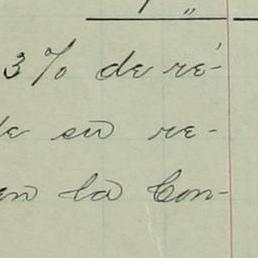 3% de ré-
de su re-
en la Con-